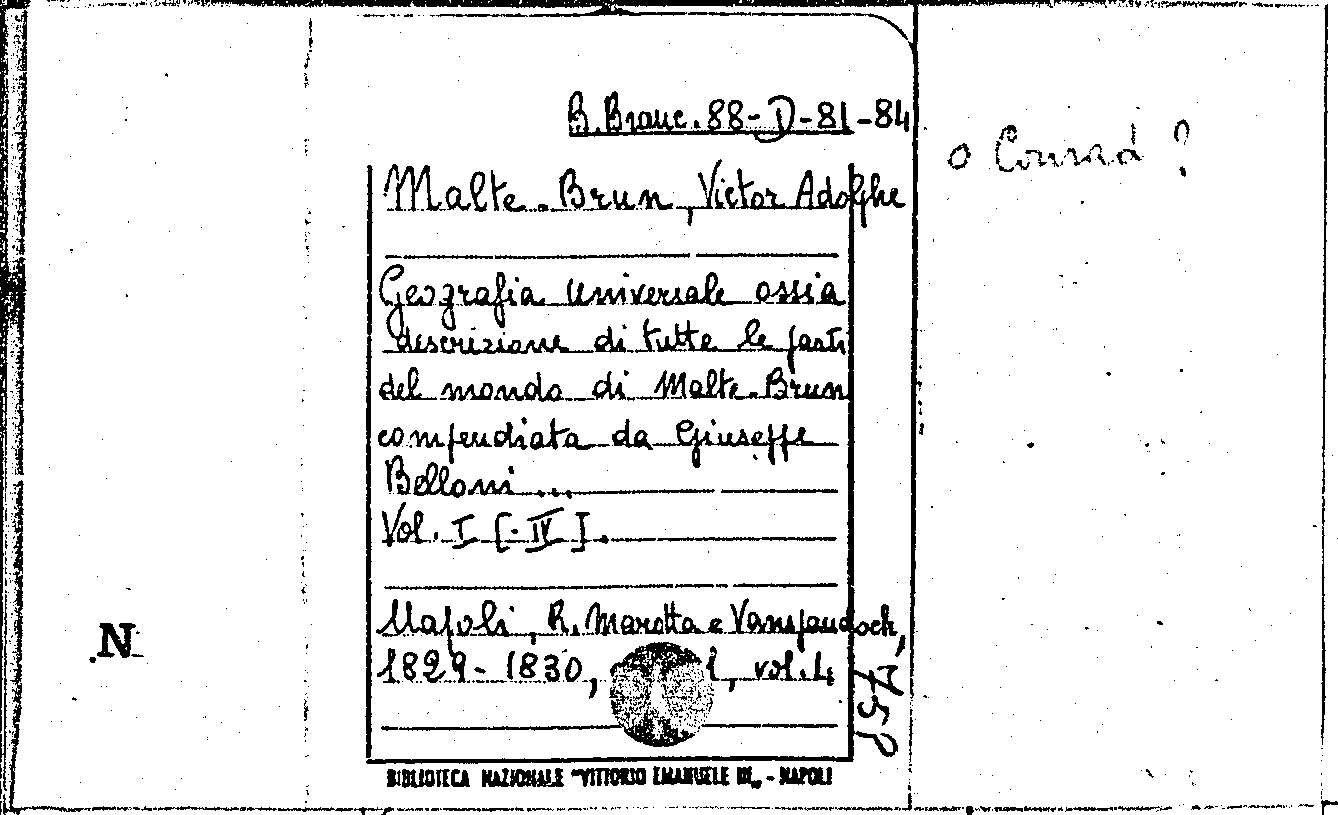 B. Branc. 88-D-81-84
o Conrad ?
Malte-Brun, Victor Adolphe
Geografia universale ossia
descrizione di tutte le parti
del mondo di Malte-Brun
compendiata da Giuseppe
Belloni ...
Vol. I [-IV].
Napoli, R. Marotta e Vanspandoch,
1829-1830, vol. 4
758
N
BIBLIOTECA NAZIONALE "VITTORIO EMANUELE III„ - NAPOLI